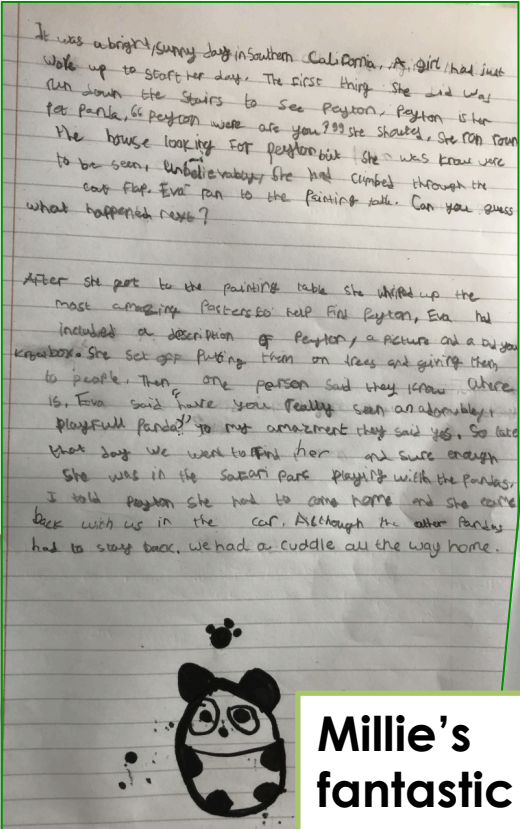 It was a bright, sunny day in Southern California. A girl had just
woke up to start her day. The first thing she did was
run down the stairs to see Peyton, Peyton is her
Pet Panda, 66 Peyton were are you? 99 she shouted, She ran roun
the house looking for peyton but she was know were
to be seen, unbelievabley, she had climbed through the
cat flap. Eva ran to the Painting table. Can you guess
what happened next?
After she got to the painting table she whiped up the
most amazing Posters to help find Peyton, Eva had
included a description of Peyton, a picture and a Did you
know box. She set off putting them on trees and giving them
to people. Then one person said they know where
is. Eva said "have you really seen an adorable,
playfull Panda?" To my amazment they said yes. So late
that day we went to find her and sure enough
She was in the Safari Park playing with the pandas.
I told peyton she had to come home and she came
back with us in the car. Although the other Pandas
had to stay back. we had a cuddle all the way home.
Millie's
fantastic